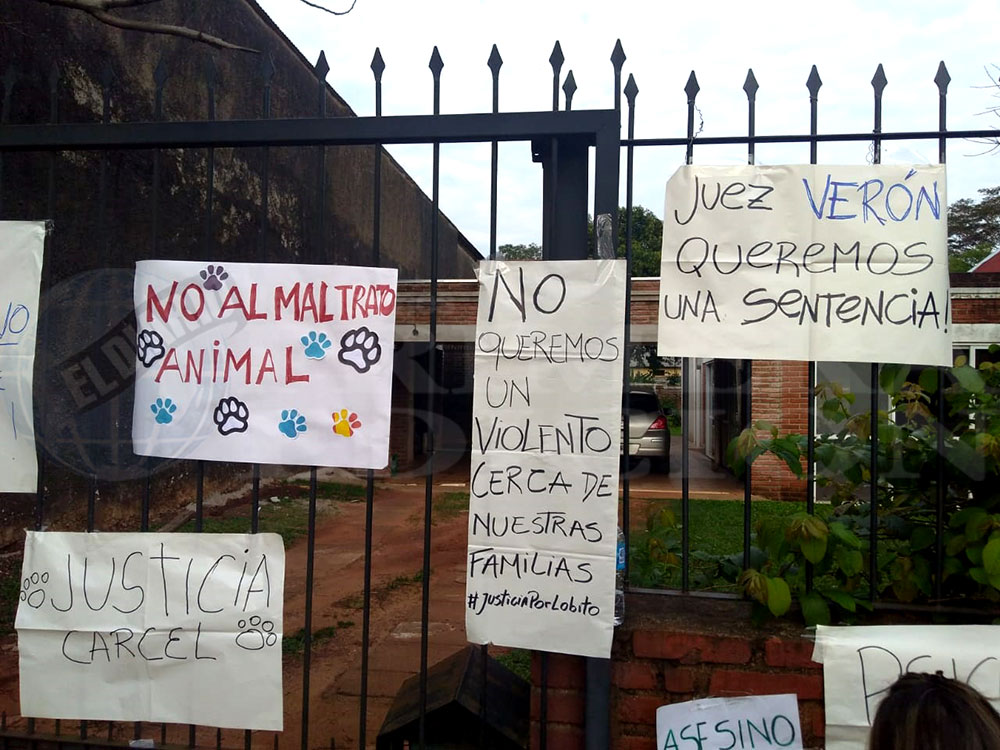 NO AL MALTRATO
ANIMAL
NO
QUEREMOS
UN
VIOLENTO
CERCA DE
NUESTRAS
FAMILIAS
#JusticiaPorLobito
Juez VERÓN
QUEREMOS
UNA SENTENCIA!
JUSTICIA
CARCEL
ASESINO